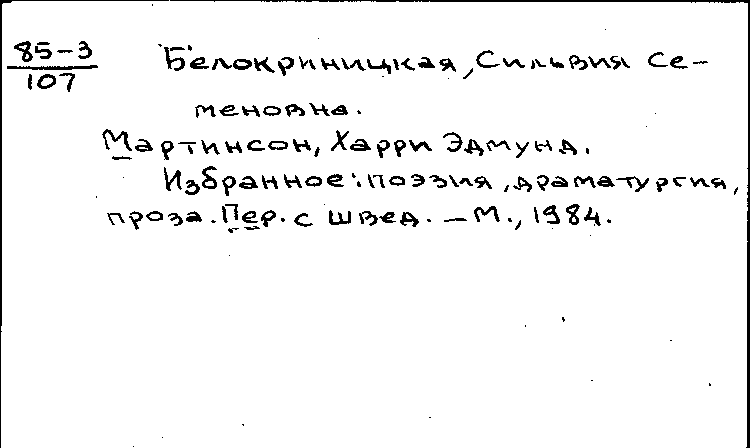 85-3 Белокриницкая, Сильвия Се-
107
меновна.
Мартинсон, Харри Эдмунд.
Избранное: поэзия, драматургия,
проза. Пер. с швед. – М., 1984.